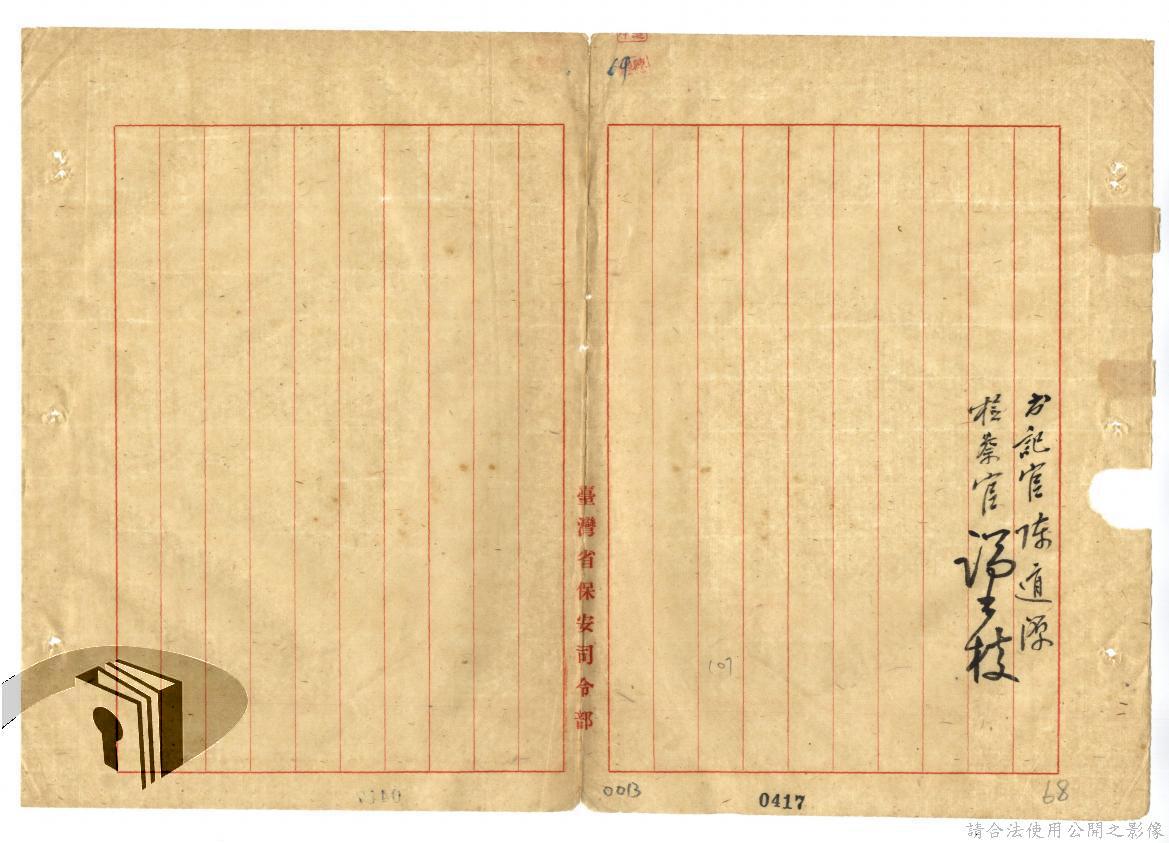 69
书記官 陳道源
檢察官
臺灣省保安司令部
107
00B
0417
68
請合法使用公開之影像